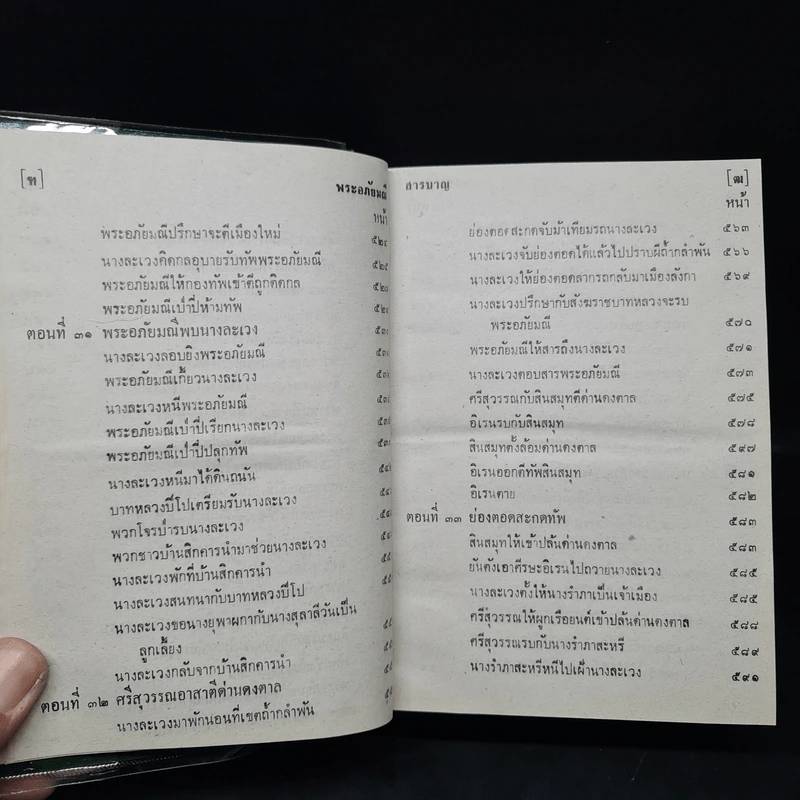 [ฑ] พระอภัยมณี
หน้า
พระอภัยมณีปรึกษาจะตีเมืองใหม่ ๕๒๔
นางละเวงคิดกลอุบายรับทัพพระอภัยมณี ๕๒๕
พระอภัยมณีให้กองทัพเข้าตีถูกติดกล
พระอภัยมณีเป่าปี่ห้ามทัพ
ตอนที่ ๓๑ พระอภัยมณีพบนางละเวง
นางละเวงลอบยิงพระอภัยมณี
พระอภัยมณีเกี้ยวนางละเวง
นางละเวงหนีพระอภัยมณี
พระอภัยมณีเป่าปี่เรียกนางละเวง
พระอภัยมณีเป่าปี่ปลุกทัพ
นางละเวงหนีมาได้ดินถนัน
บาทหลวงปีโปเตรียมรับนางละเวง
พวกโจรบ้ารบนางละเวง
พวกชาวบ้านสิกคารนำมาช่วยนางละเวง
นางละเวงพักที่บ้านสิกคารนำ
นางละเวงสนทนากับบาทหลวงปีโป
นางละเวงขอนางยุพาผกากับนางสุลาลีวันเป็น
ลูกเลี้ยง
นางละเวงกลับจากบ้านสิกคารนำ
ตอนที่ ๓๒ ศรีสุวรรณอาสาตีด่านดงตาล
นางละเวงมาพักนอนที่เขตถ้ำกลำพัน
สารบาญ [ฒ]
หน้า
ย่องตอดสะกดจับม้าเทียมรถนางละเวง ๕๖๓
นางละเวงจับย่องตอดได้แล้วไปปราบผีถ้ำกลำพัน ๕๖๖
นางละเวงให้ย่องตอดลากรถกลับมาเมืองลังกา ๕๖๙
นางละเวงปรึกษากับสังฆราชบาทหลวงจะรบ
พระอภัยมณี ๕๗๐
พระอภัยมณีให้สารถึงนางละเวง ๕๗๑
นางละเวงตอบสารพระอภัยมณี ๕๗๓
ศรีสุวรรณกับสินสมุทตีด่านดงตาล ๕๗๕
อิเรนรบกับสินสมุท ๕๗๘
สินสมุทตั้งล้อมด่านดงตาล ๕๙๗
อิเรนออกตีทัพสินสมุท ๕๘๑
อิเรนตาย ๕๘๒
ตอนที่ ๓๓ ย่องตอดสะกดทัพ ๕๘๓
สินสมุทให้เข้าปล้นด่านดงตาล ๕๘๓
ยันตังเอาศีรษะอิเรนไปถวายนางละเวง ๕๘๕
นางละเวงตั้งให้นางรำภาเป็นเจ้าเมือง ๕๘๕
ศรีสุวรรณให้ผูกเรือยนต์เข้าปล้นด่านดงตาล ๕๘๘
ศรีสุวรรณรบกับนางรำภาสะหรี ๕๘๙
นางรำภาสะหรีหนีไปเฝ้านางละเวง ๕๙๑